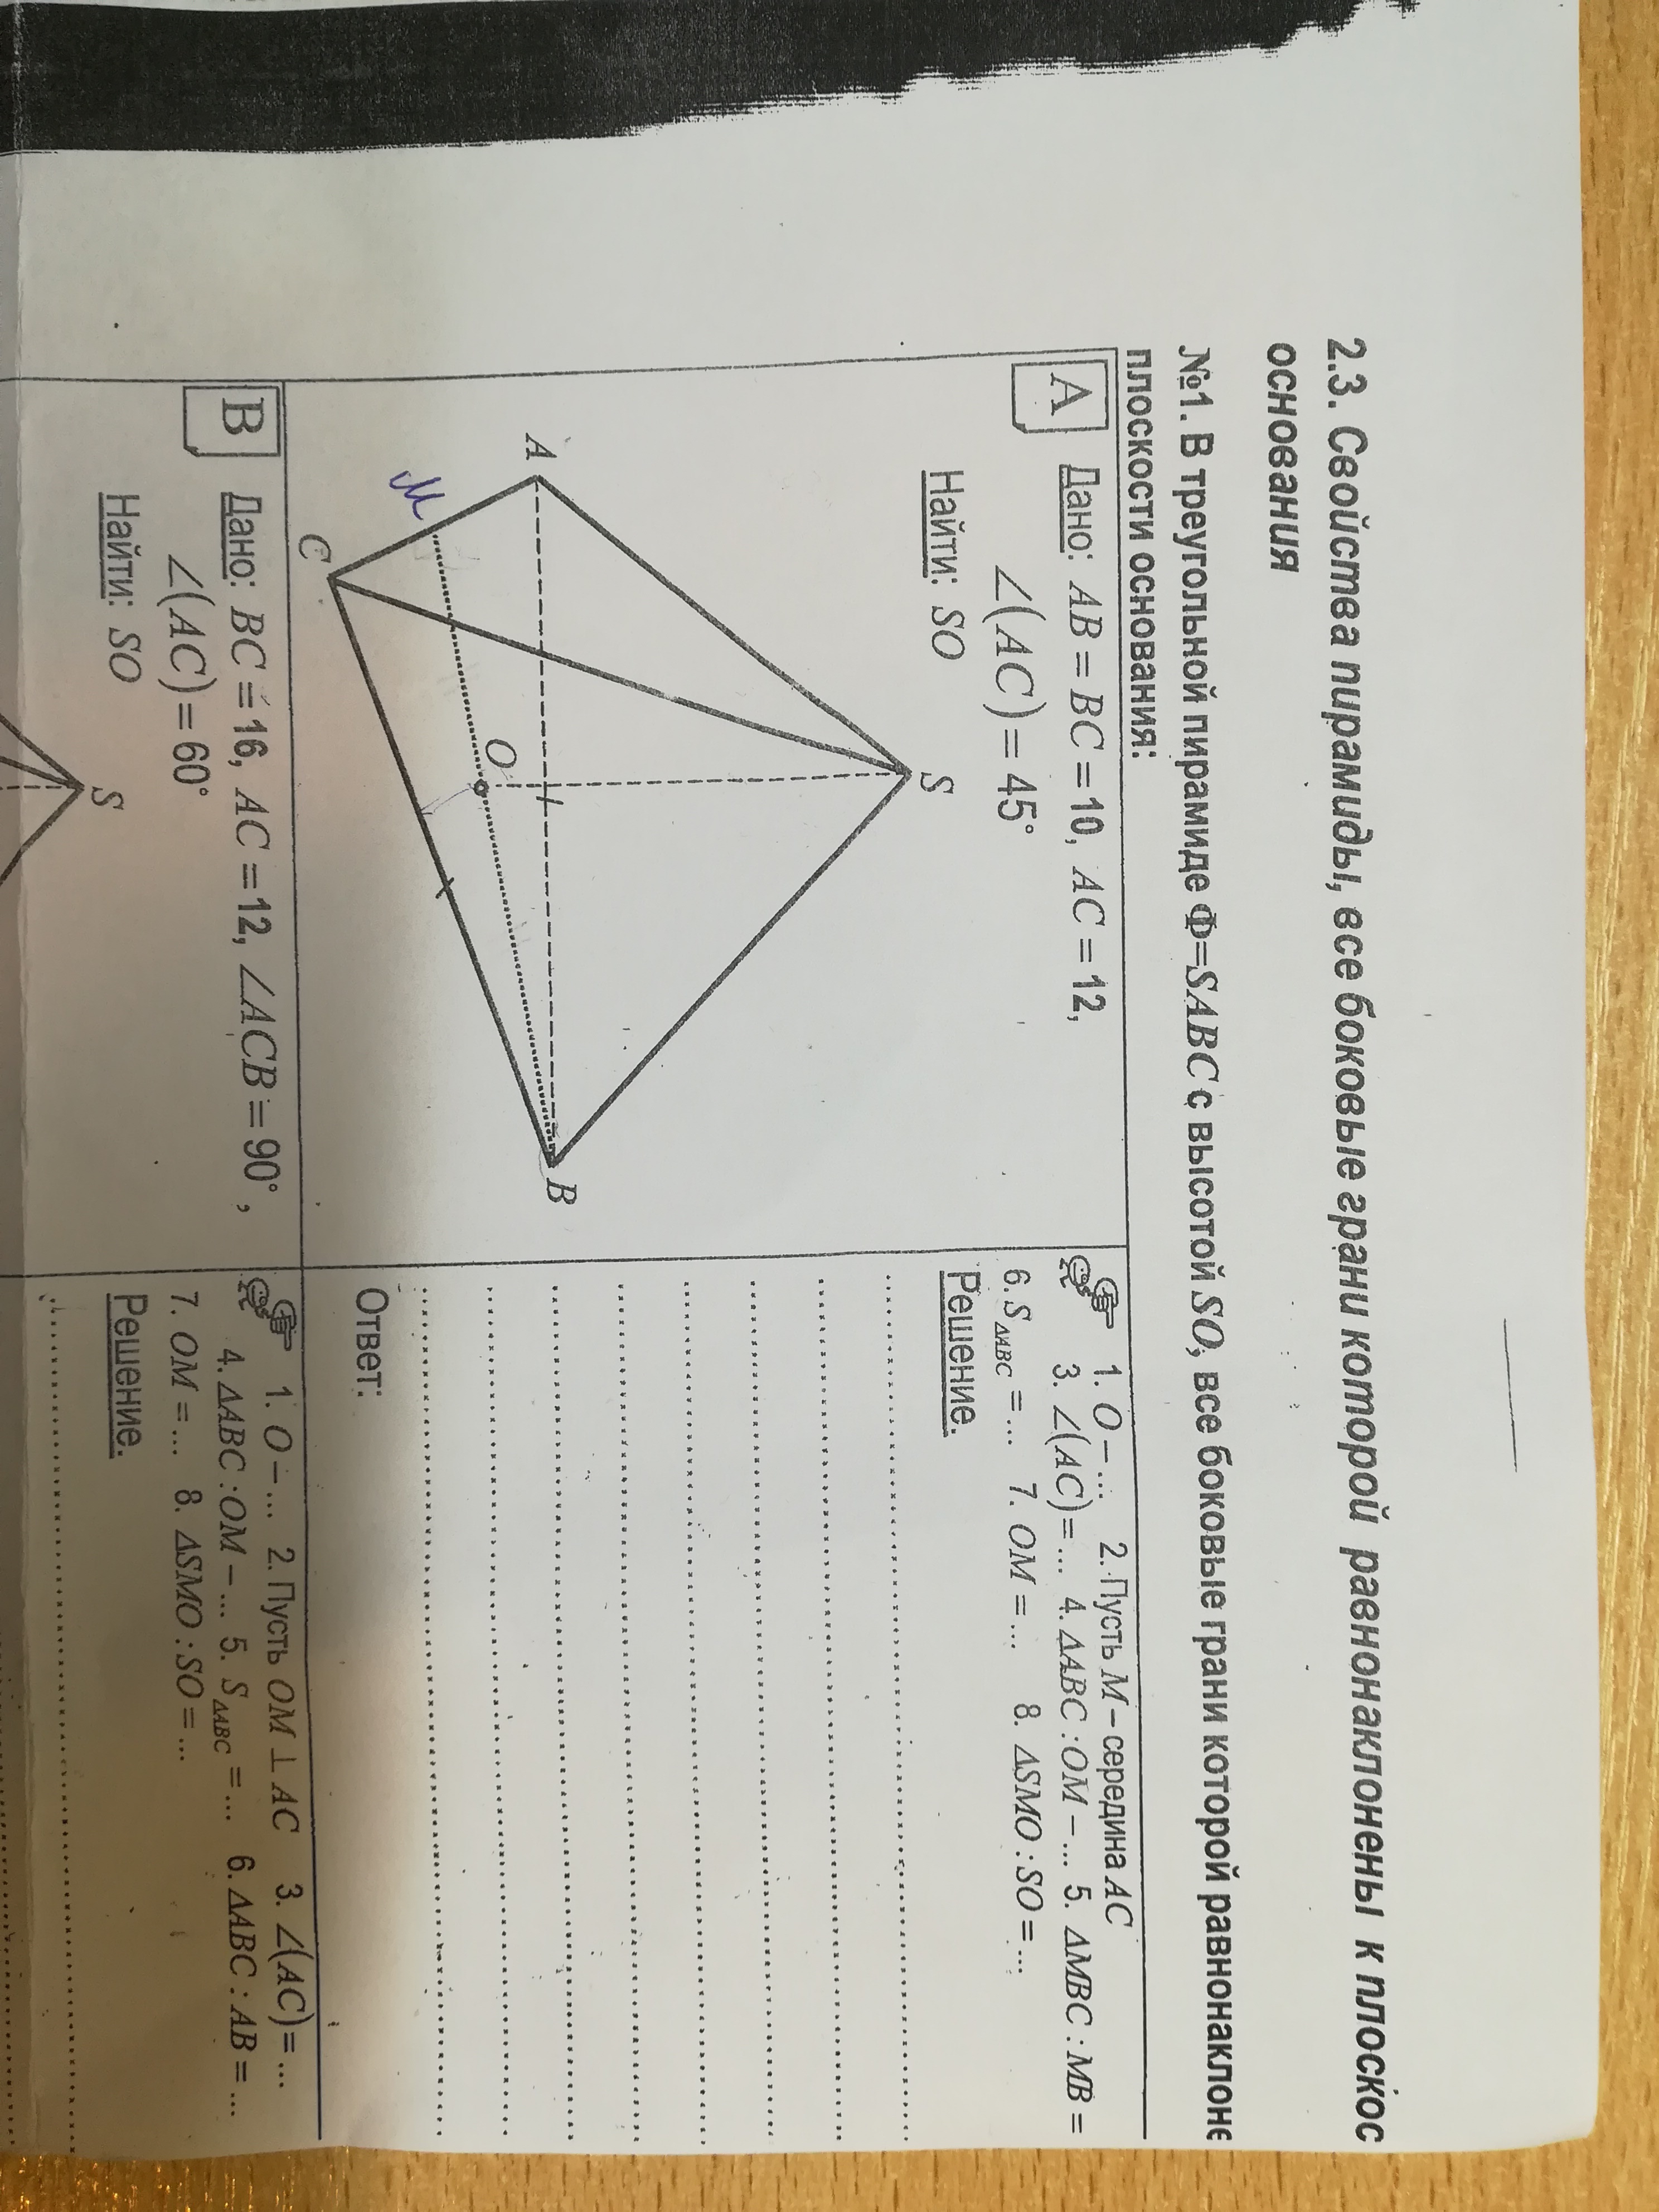 2.3. Свойства пирамиды, все боковые грани которой равнонаклонены к плоскос
основания
№1. В треугольной пирамиде Ф=SABC с высотой SO, все боковые грани которой равнонаклоне
плоскости основания:
A
Дано: AB = BC = 10, AC = 12,
∠(AC) = 45°
Найти: SO
S
A
B
C
O
M
1. O – ... 2. Пусть M – середина AC
3. ∠(AC) = ... 4. ΔABC : OM – ... 5. ΔMBC : MB =
6. S ΔABC = ... 7. OM = ... 8. ΔSMO : SO = ...
Решение.
Ответ:
B
Дано: BC = 16, AC = 12, ∠ACB = 90°,
∠(AC) = 60°
Найти: SO
S
1. O – ... 2. Пусть OM ⊥ AC 3. ∠(AC) = ...
4. ΔABC : OM – ... 5. S ΔABC = ... 6. ΔABC : AB = ...
7. OM = ... 8. ΔSMO : SO = ...
Решение.